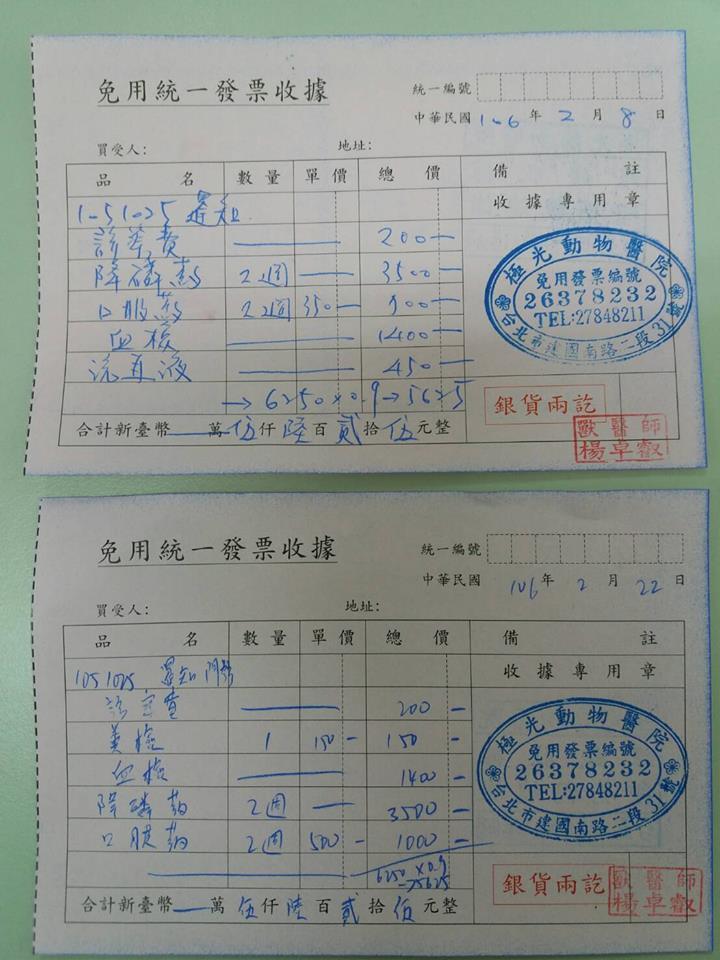 免用統一發票收據
統一編號
中華民國 106 年 2 月 8 日
買受人: 地址:
品名 數量 單價 總價 備註
收據專用章
1051025
診察費 200—
降磷葯 2週 3500—
口服葯 2週 350— 900—
血檢 1400—
流直液 450—
→ 6250×0.9→5625
合計新臺幣 萬 伍 仟 陸 百 貳 拾 伍 元整
極光動物醫院
免用發票編號
26378232
TEL:27848211
台北市建國南路二段31號
銀貨兩訖
獸醫師
楊卓叡
免用統一發票收據
統一編號
中華民國 106 年 2 月 22 日
買受人: 地址:
品名 數量 單價 總價 備註
收據專用章
1051025
200—
1 150— 150—
血檢 1400—
降磷葯 2週 3500—
口服葯 2週 500— 1000—
6250×0.9
5625
合計新臺幣 萬 伍 仟 陸 百 貳 拾 伍 元整
極光動物醫院
免用發票編號
26378232
TEL:27848211
台北市建國南路二段31號
銀貨兩訖
獸醫師
楊卓叡